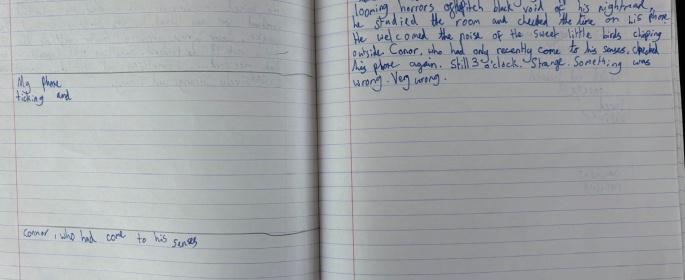 My phone
ticking and
Connor, who had come to his senses
looming horrors of pitch black void of his nightmare,
he studied the room and checked the time on his phone
He welcomed the noise of the sweet little birds chiping
outside Conor, who had only recently come to his senses, checked
his phone again. Still 3 o'clock. Strange. Something was
wrong. Very wrong.